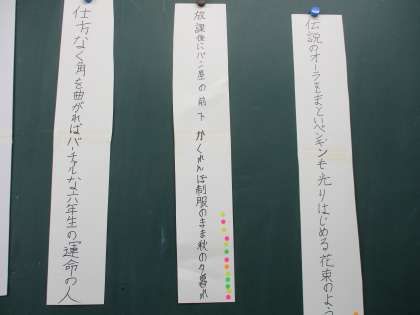 伝説のオーラをまといペンギンも光りはじめる花束のよう
放課後にパン屋の前でかくれんぼ制服のまま秋の夕暮れ
仕方なく角を曲がればバーチャルな六年生の運命の人